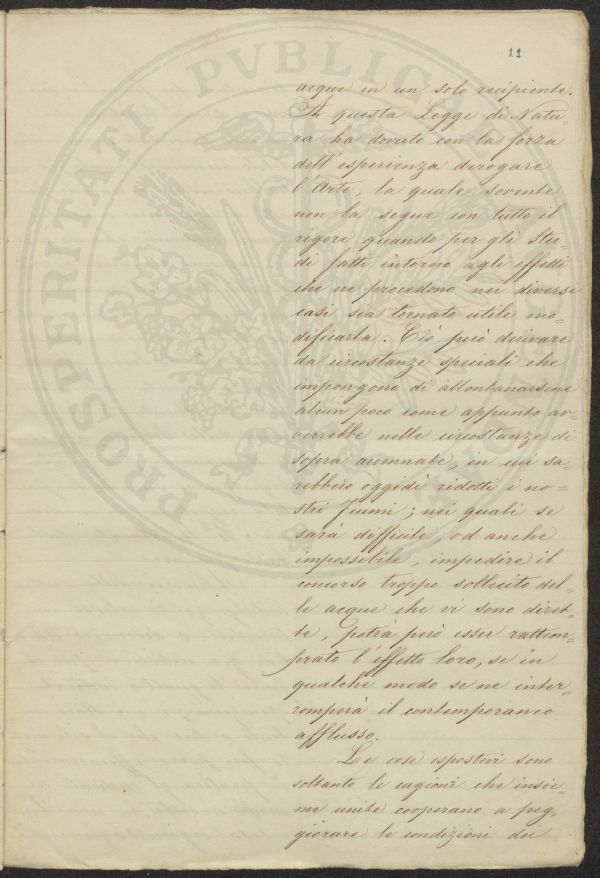 11
acque in un solo recipiente.
A questa Legge di Natu-
ra ha dovuto con la forza
dell'esperienza derogare
l'Arte, la quale sovente
non la segue con tutto il
rigore quando per gli Stu-
di fatti intorno agli effetti
che ne procedono nei diversi
casi sia tornato utile mo-
dificarla. Ciò può derivare
da circostanze speciali che
impongono di allontanarsene
alcun poco come appunto av-
verrebbe nelle circostanze di
sopra accennate, in cui sa-
rebbero oggidì ridotti i no-
stri fiumi; nei quali se
sarà difficile, od anche
impossibile, impedire il
concorso troppo sollecito del-
le acque che vi sono diret-
te, potrà però esser rattem-
prato l'effetto loro, se in
qualche modo se ne inter-
romperà il contemporaneo
afflusso.
Le cose espostevi sono
soltanto le cagioni che insie-
me unite cooperano a peg-
giorare le condizioni dei
PROSPERITATI PVBLICAE